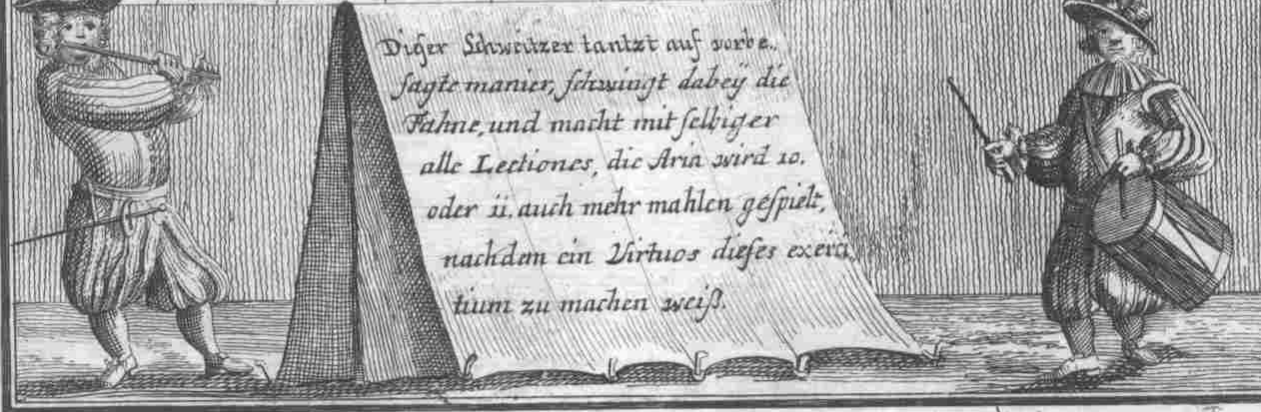 Dißer Schweitzer tantzt auf vorbe,,
sagte manier, schwingt dabeÿ die
Fahne, und macht mit selbiger
alle Lectiones, die Aria wird 10.
oder ii. auch mehr mahlen gespielt,
nachdem ein Virtuos dieses exerci,,
tium zu machen weiß.